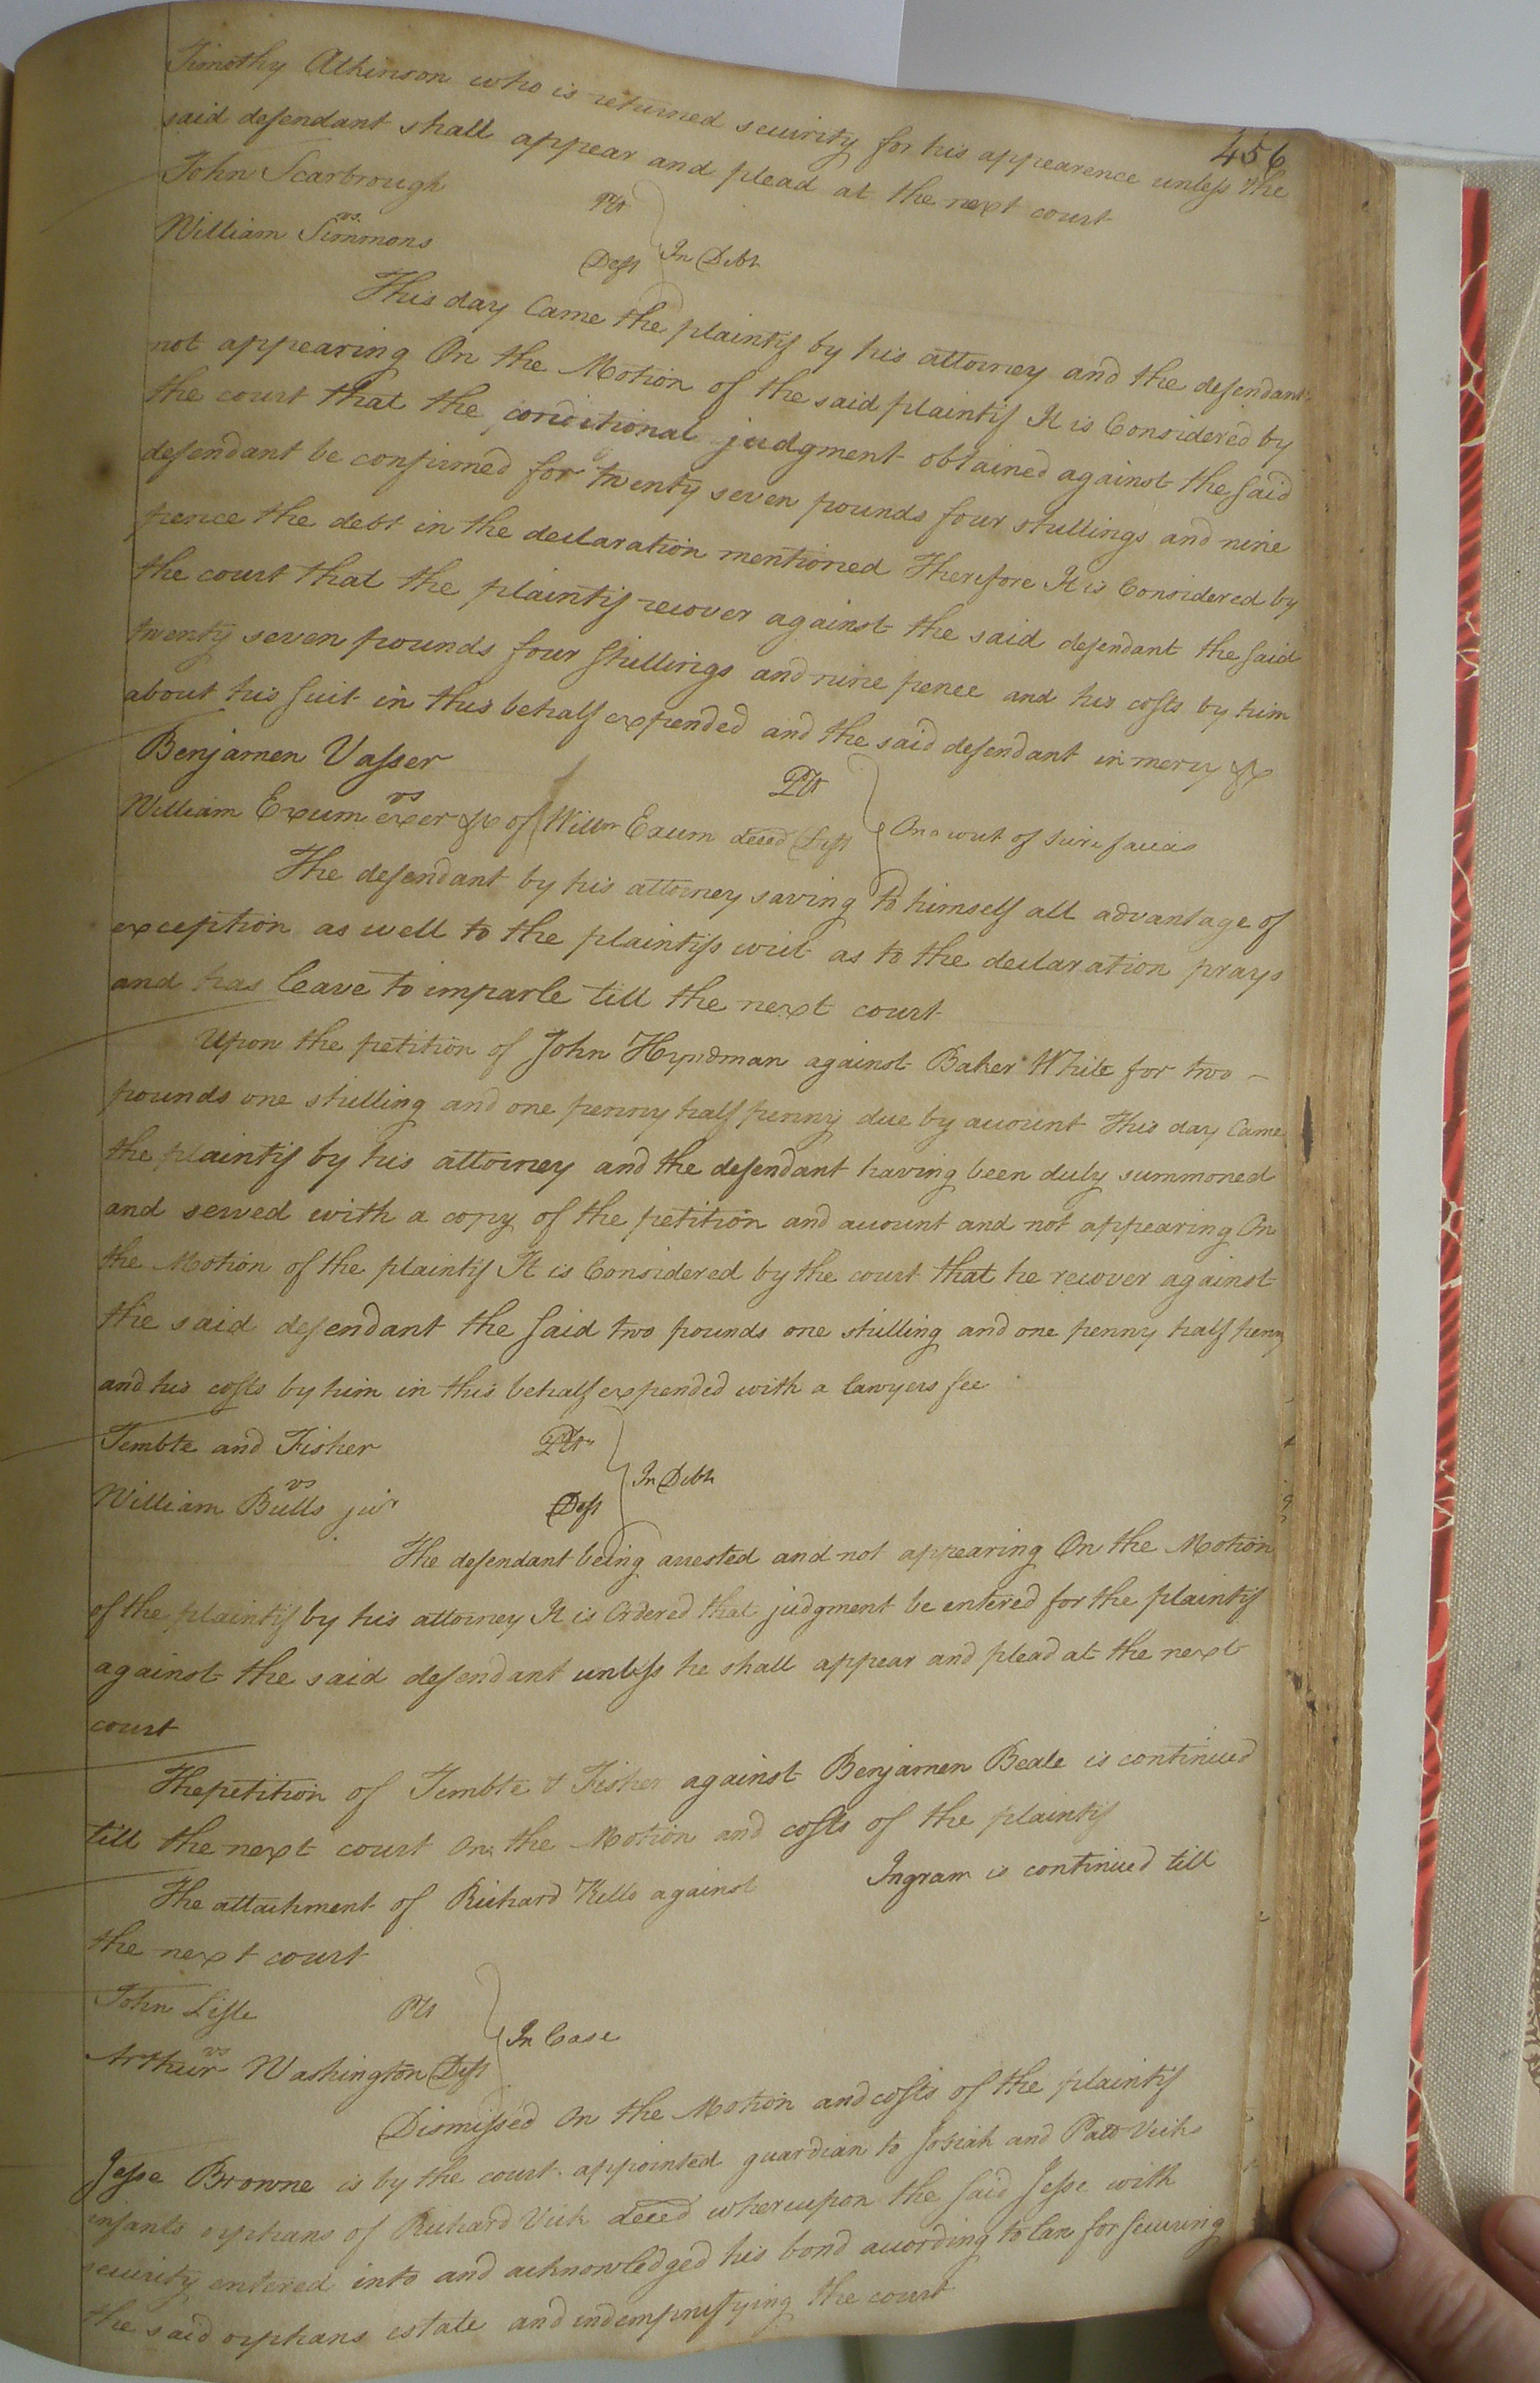 456
Timothy Atkinson who is returned security for his appearence unless the
said defendant shall appear and plead at the next court
John Scarbrough Plt
vs
William Simmons Deft
In Debt
This day Came the plaintif by his attorney and the defendant
not appearing On the Motion of the said plaintif It is Considered by
the court that the conditional judgment obtained against the said
defendant be confirmed for twenty seven pounds four shillings and nine
pence the debt in the declaration mentioned Therefore It is Considered by
the court that the plaintif recover against the said defendant the said
twenty seven pounds four shillings and nine pence and his costs by him
about his suit in this behalf expended and the said defendant in mercy &c
Benjamen Vasser Plt
vs
William Exum exer &c of Willm Exum deced Deft
On a writ of scire facias
The defendant by his attorney saving to himself all advantage of
exception as well to the plaintifs writ as to the declaration prays
and has leave to imparle till the next court
Upon the petition of John Hyndman against Baker White for two
pounds one shilling and one penny half penny due by account This day Came
the plaintif by his attorney and the defendant having been duly summoned
and served with a copy of the petition and account and not appearing On
the Motion of the plaintif It is Considered by the court that he recover against
the said defendant the said two pounds one shilling and one penny half penny
and his costs by him in this behalf expended with a lawyers fee
Tembte and Fisher Plts
vs
William Bulls jur Deft
In Debt
The defendant being arrested and not appearing On the Motion
of the plaintif by his attorney It is Ordered that judgment be entered for the plaintif
against the said defendant unless he shall appear and plead at the next
court
The petition of Tembte & Fisher against Benjamen Beale is continued
till the next court On the Motion and costs of the plaintif
The attachment of Richard Kello against Ingram is continued till
the next court
John Lisle Plt
vs
Arthur Washington Deft
In Case
Dismissed On the Motion and costs of the plaintif
Jesse Browne is by the court appointed guardian to Josiah and Vicks
infants orphans of Richard Vick deced whereupon the said Jesse with
security entered into and acknowledged his bond according to law for securing
the said orphans estate and indempnifying the court